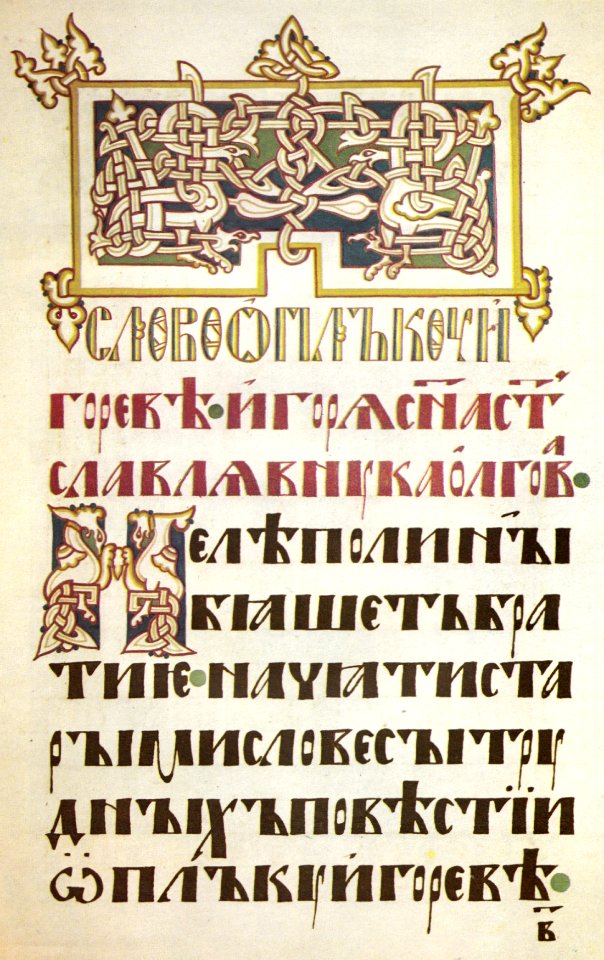 СЛОВОѠПЛЪКОУИ҆
ГОРЕВѢ·И҆ГОРѦСН҃АСТ҃
СЛАВЛѦВНꙊКАО҆ЛГОВⷶ·
НЕЛѢПОЛИНЪІ
БꙖШЕТЬБРА
ТИѤ·НАЧꙖТИСТА
РЪІМИСЛОВЕСЪІТРꙊ
ДНЪІХЪПОВѢСТЇИ
Ѡ̈ПЛЪКꙊИ҆ГОРЕВѢ·
В҃